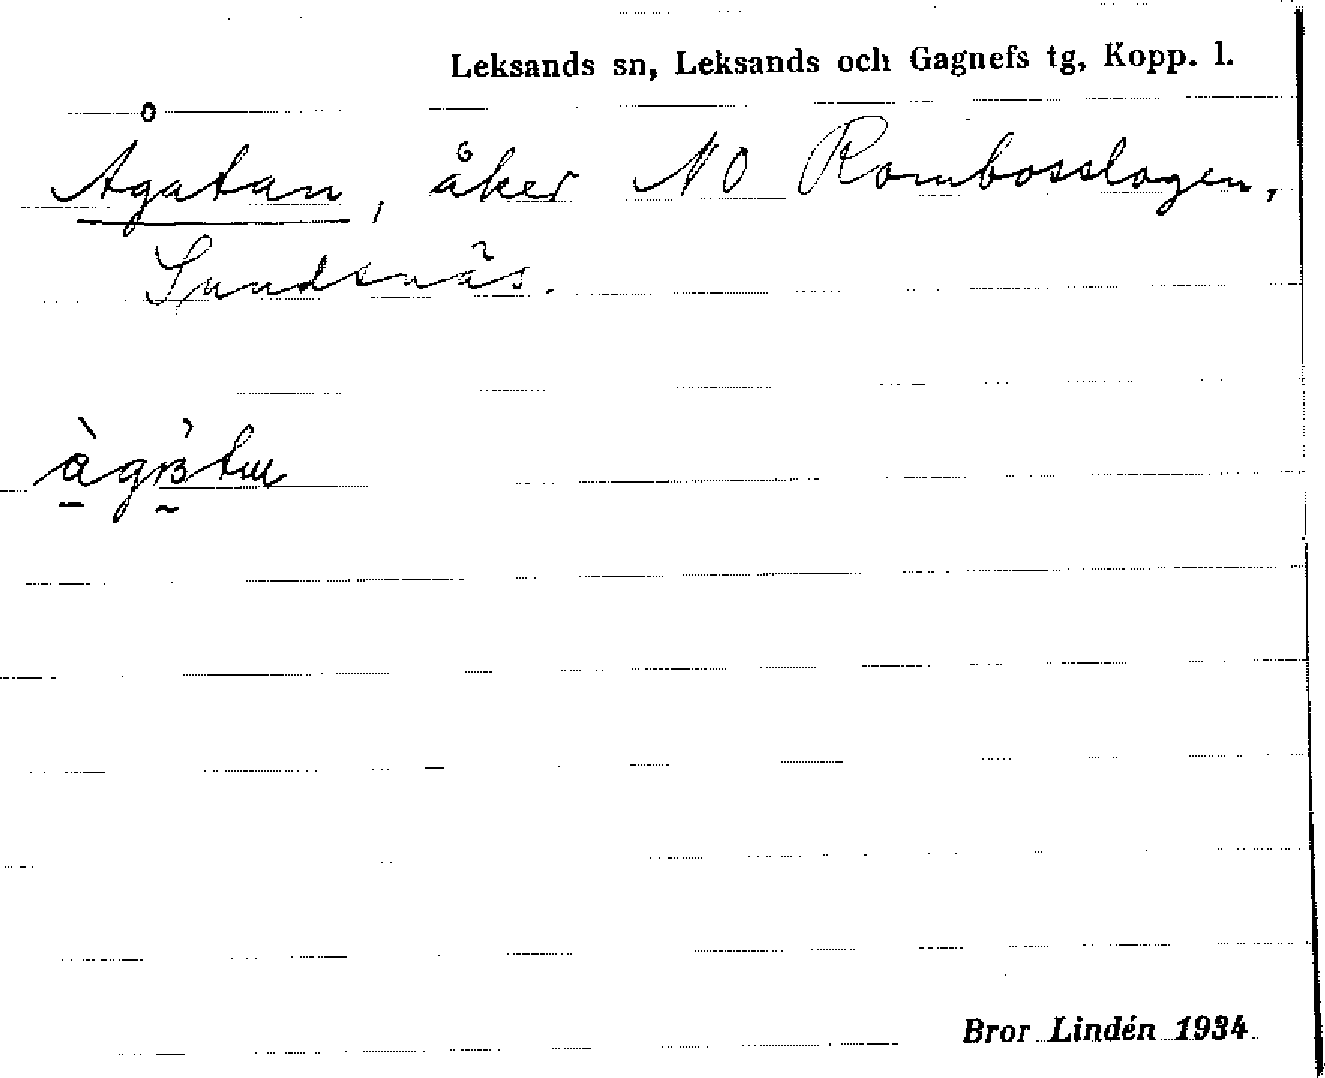 Leksands sn, Leksands och Gagnefs tg, Kopp. l.
Ågatan, åker NO Rombosslogen,
Sundsnäs.
Bror Lindén 1934